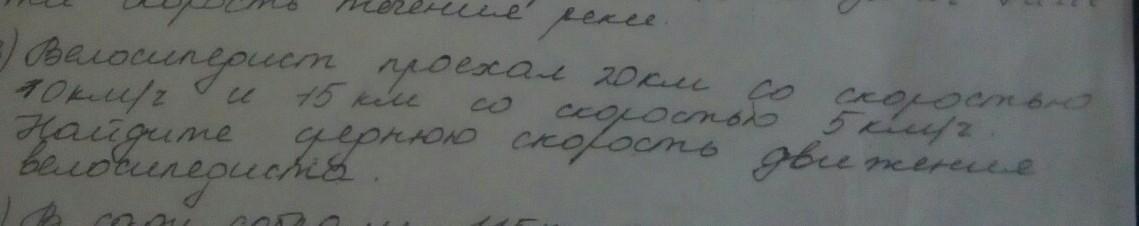 скорость течения реки.
) Велосипедист проехал 20 км со скоростью
10 км/ч и 15 км со скоростью 5 км/ч.
Найдите среднюю скорость движения
велосипедиста.
) В